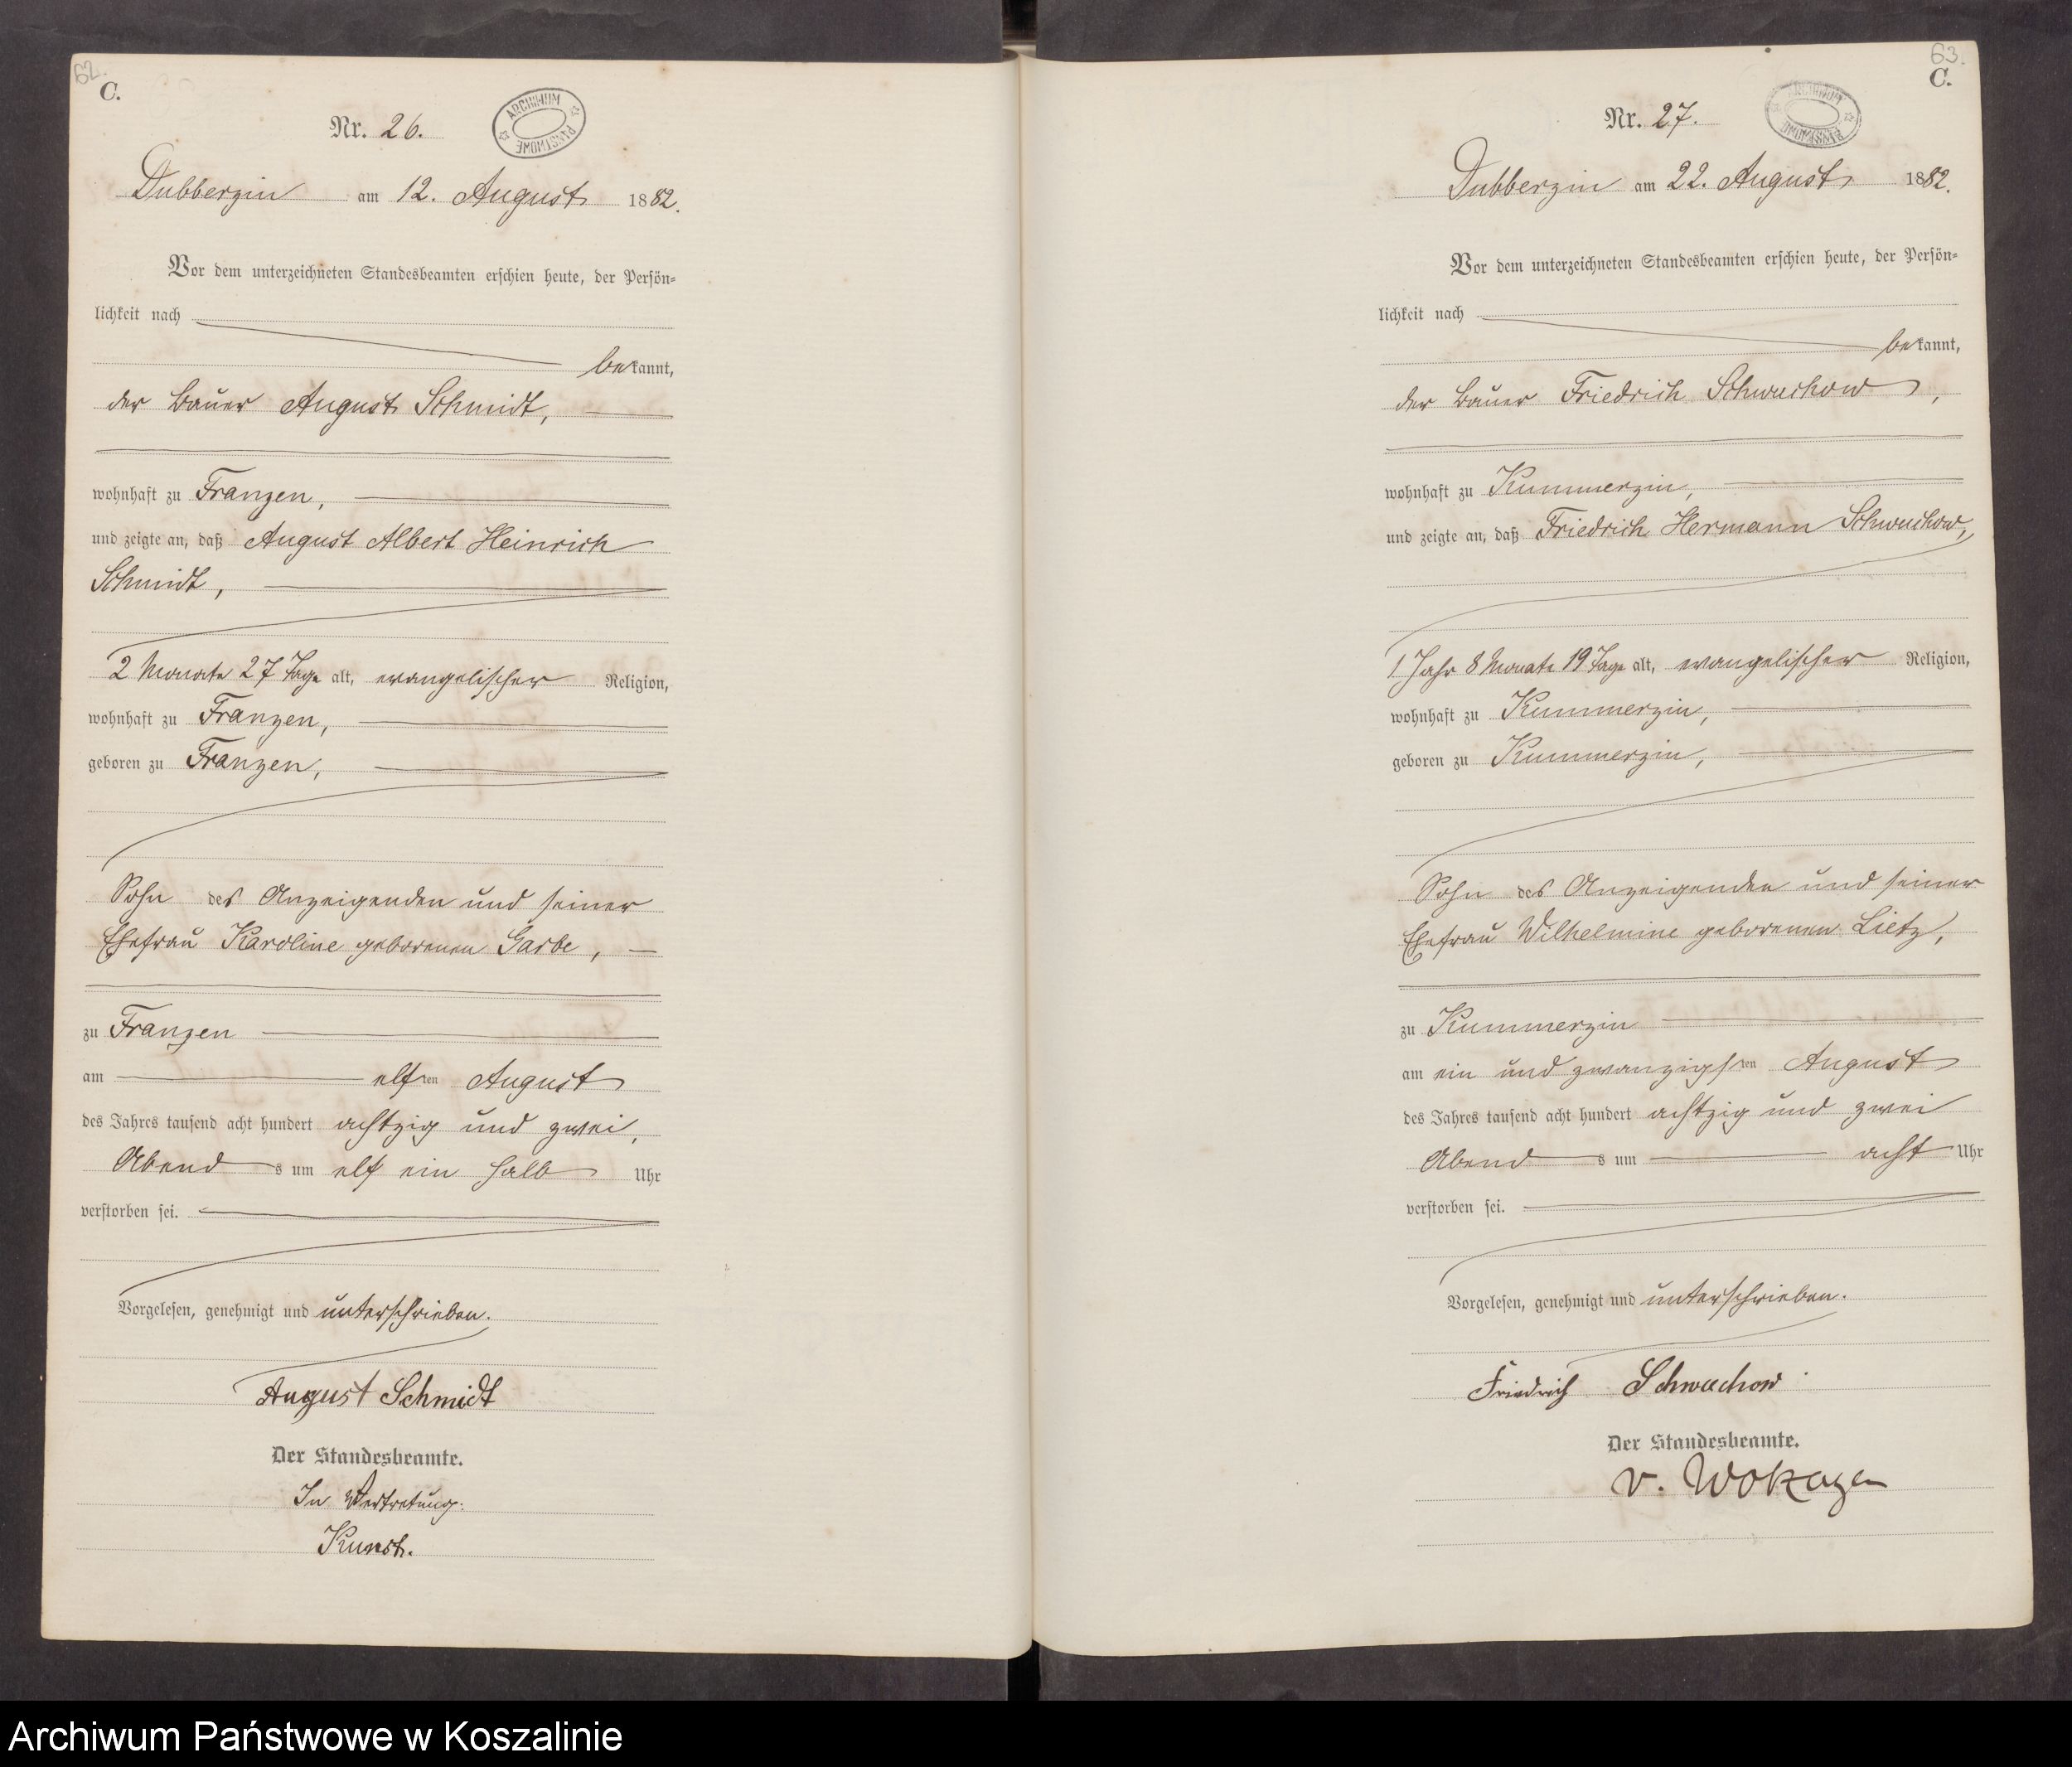 62.
C.
Nr. 26.
ARCHIWUM PAŃSTWOWE
Dubberzin am 12. August 1882.
Vor dem unterzeichneten Standesbeamten erschien heute, der Persön=
lichkeit nach
bekannt,
der Bauer August Schmidt,
wohnhaft zu Franzen,
und zeigte an, daß August Albert Heinrich
Schmidt,
2 Monate 27 Tage alt, evangelischer Religion,
wohnhaft zu Franzen,
geboren zu Franzen,
Sohn des Anzeigenden und seiner
Ehefrau Karoline geborenen Garbe,
zu Franzen
am elften August
des Jahres tausend acht hundert achtzig und zwei,
Abends um elf ein halb Uhr
verstorben sei.
Vorgelesen, genehmigt und unterschrieben.
August Schmidt
Der Standesbeamte.
In Vertretung:
Kunst.
63.
C.
Nr. 27.
ARCHIWUM PAŃSTWOWE
Dubberzin am 22. August 1882.
Vor dem unterzeichneten Standesbeamten erschien heute, der Persön=
lichkeit nach
bekannt,
der Bauer Friedrich Schwuchow,
wohnhaft zu Kummerzin,
und zeigte an, daß Friedrich Hermann Schwuchow,
1 Jahr 8 Monate 19 Tage alt, evangelischer Religion,
wohnhaft zu Kummerzin,
geboren zu Kummerzin,
Sohn des Anzeigenden und seiner
Ehefrau Wilhelmine geborenen Lietz,
zu Kummerzin
am ein und zwanzigsten August
des Jahres tausend acht hundert achtzig und zwei
Abends um acht Uhr
verstorben sei.
Vorgelesen, genehmigt und unterschrieben.
Friedrich Schwuchow
Der Standesbeamte.
v. Wokazen
Archiwum Państwowe w Koszalinie